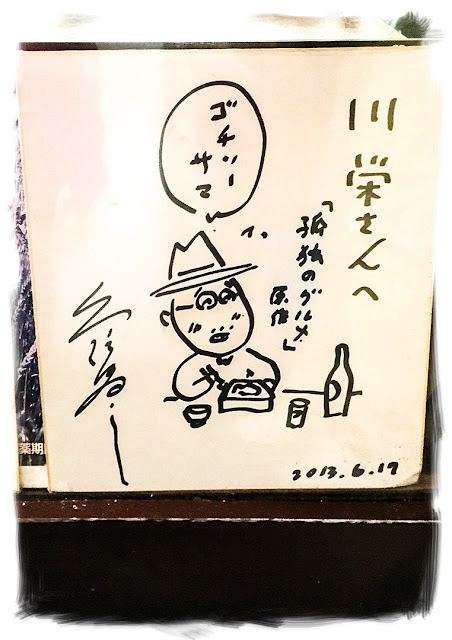 川栄さんへ
「孤独のグルメ」
原作
ゴチソー
サマ
久住昌之
2013.6.19
薬期